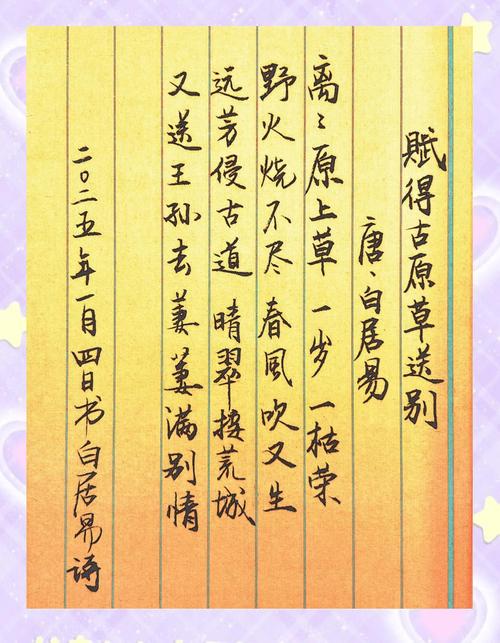 赋得古原草送别
唐、白居易
离〻原上草 一岁一枯荣
野火烧不尽 春風吹又生
远芳侵古道 晴翠接荒城
又送王孙去 萋萋满别情
二〇二五年一月四日书白居易诗